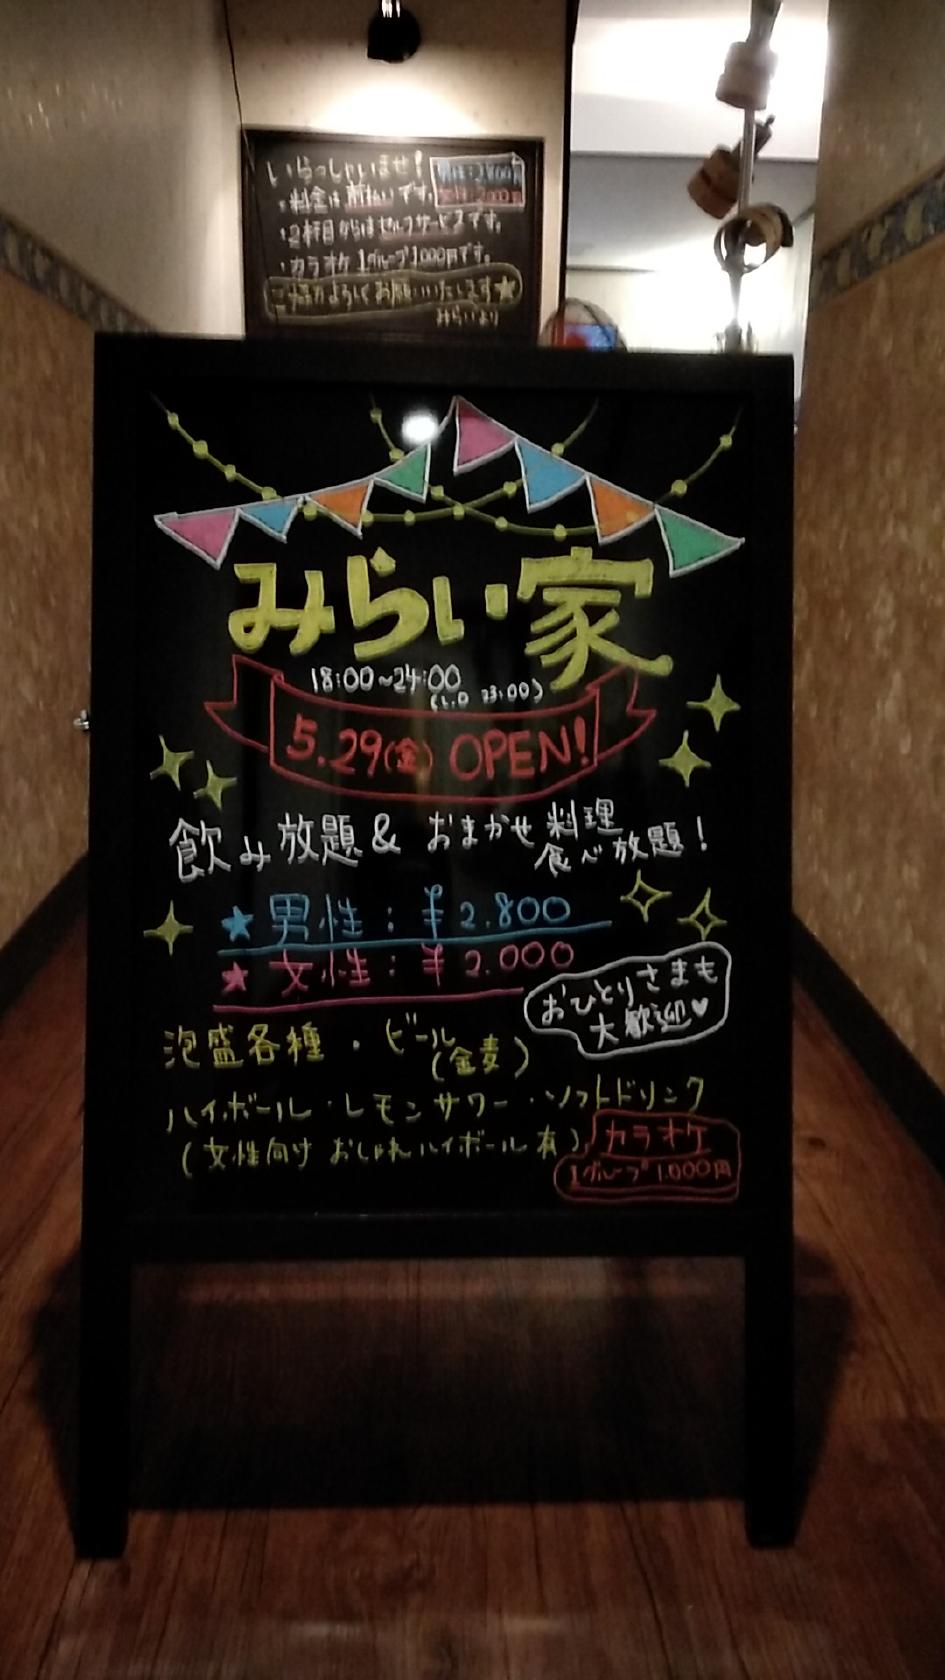 いらっしゃいませ!
・料金は前払いです。
男性:2,800円
女性:2,000円
・2杯目からはセルフサービスです。
・カラオケ1グループ1000円です。
ご協力よろしくお願いいたします★
みらいより
みらい家
18:00~24:00
(L.O 23:00)
5.29(金) OPEN!
飲み放題& おまかせ料理
食べ放題!
★男性:¥2.800
★女性:¥2.000
おひとりさまも
大歓迎♥
泡盛各種・ビール
(金麦)
ハイボール・レモンサワー・ソフトドリンク
(女性向け おしゃれハイボール有)
カラオケ
1グループ1.000円